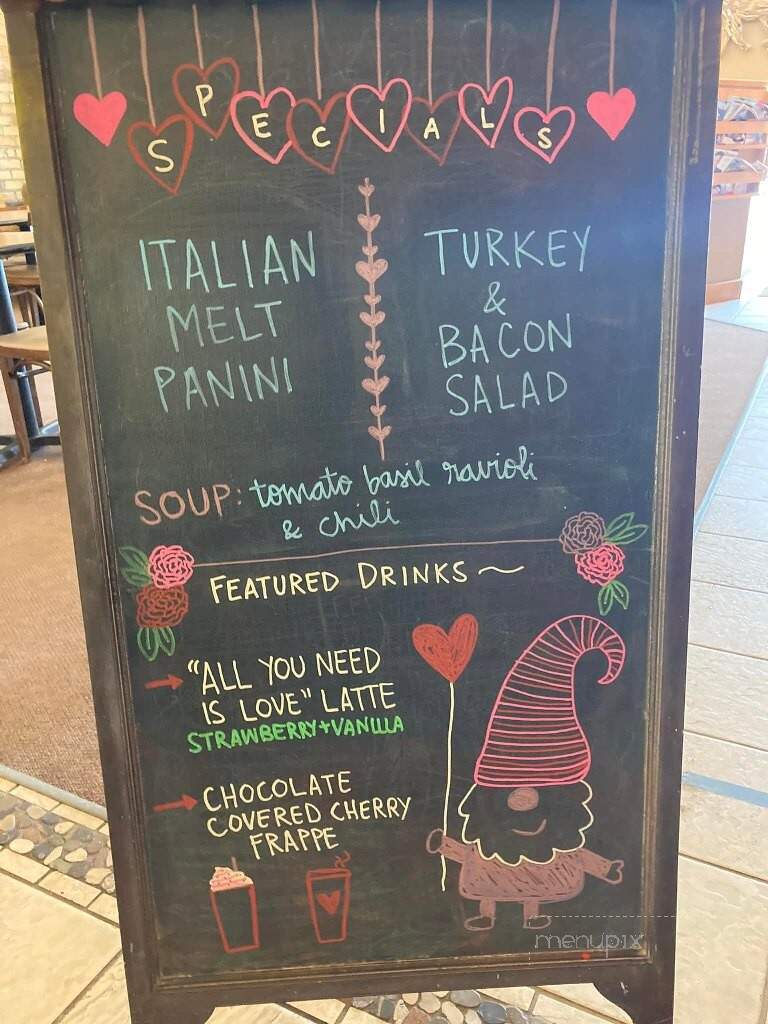 SPECIALS
ITALIAN
MELT
PANINI
TURKEY
&
BACON
SALAD
SOUP: tomato basil ravioli
& chili
FEATURED DRINKS ~
→ "ALL YOU NEED
IS LOVE" LATTE
STRAWBERRY+VANILLA
→ CHOCOLATE
COVERED CHERRY
FRAPPE
menupix